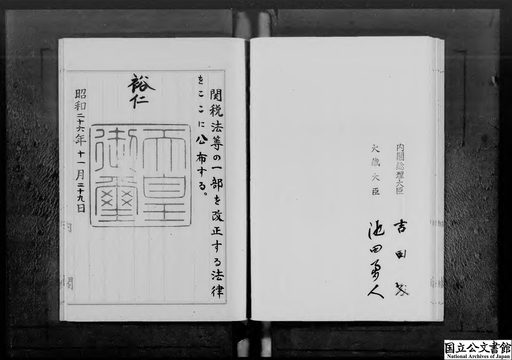 関税法等の一部を改正する法律
をここに公布する。
裕仁
天皇
御璽
昭和二十六年十一月二十九日
内閣総理大臣 吉田茂
大蔵大臣 池田勇人
国立公文書館
National Archives of Japan